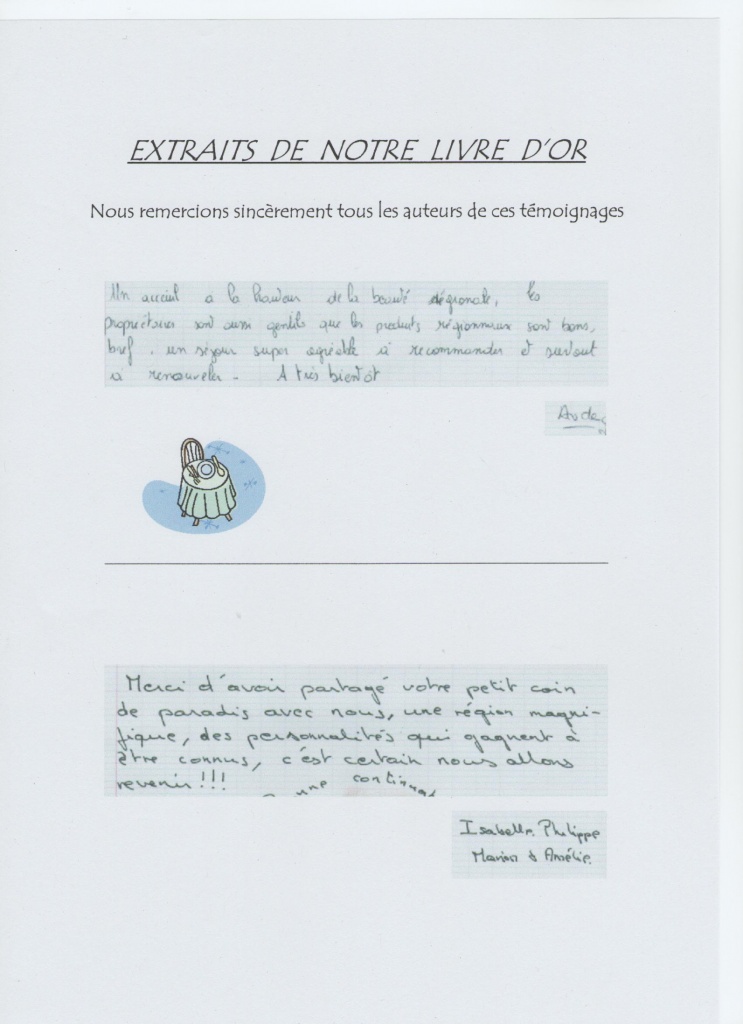 EXTRAITS DE NOTRE LIVRE D'OR
Nous remercions sincèrement tous les auteurs de ces témoignages
Un accueil à la hauteur de la beauté régionale, les
propriétaires sont aussi gentils que les produits régionnaux sont bons,
bref, un séjour super agréable à recommander et surtout
à renouveler - A très bientôt
Merci d'avoir partagé votre petit coin
de paradis avec nous, une région magni-
fique, des personnalités qui gagnent à
être connus, c'est certain nous allons
revenir !!!
une continuat
Isabelle, Philippe
Marion & Amélie